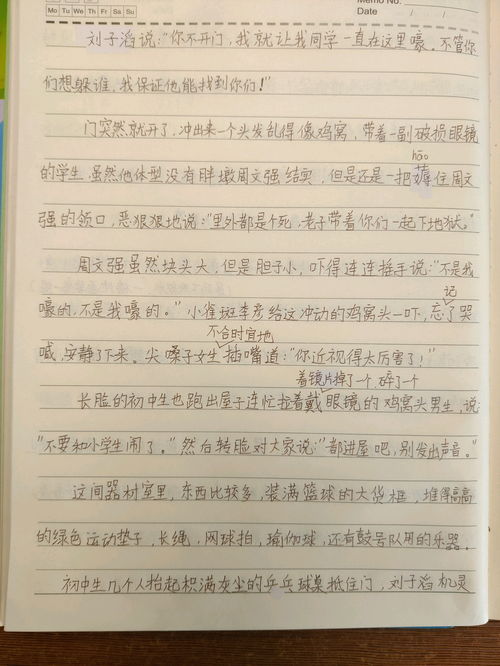 Mo Tu We Th Fr Sa Su
Memo No.
Date / /
刘子滔说:"你不开门,我就让我同学一直在这里嚎。不管你
们想躲谁,我保证他能找到你们!"
门突然就开了,冲出来一个头发乱得像鸡窝,带着一副破损眼镜
hāo
的学生。虽然他体型没有胖墩周文强结实,但是还是一把薅住周文
强的领口,恶狠狠地说:"里外都是个死,老子带着你们一起下地狱。"
周文强虽然块头大,但是胆子小,吓得连连摇手说:"不是我
嚎的,不是我嚎的。"小雀斑李彦给这冲动的鸡窝头一吓,忘了哭
记
喊,安静了下来。尖嗓子女生插嘴道:"你近视得太厉害了!"
不合时宜地
着镜片掉了一个,碎了一个
长脸的初中生也跑出屋子连忙拉着戴眼镜的鸡窝头男生,说:
"不要和小学生闹了。"然后转脸对大家说:"都进屋吧,别发出声音。"
这间器材室里,东西比较多,装满篮球的大货框,堆得高高
的绿色运动垫子,长绳,网球拍,瑜伽球,还有鼓号队用的乐器。
初中生几个人抬起积满灰尘的乒乓球桌抵住门,刘子滔机灵